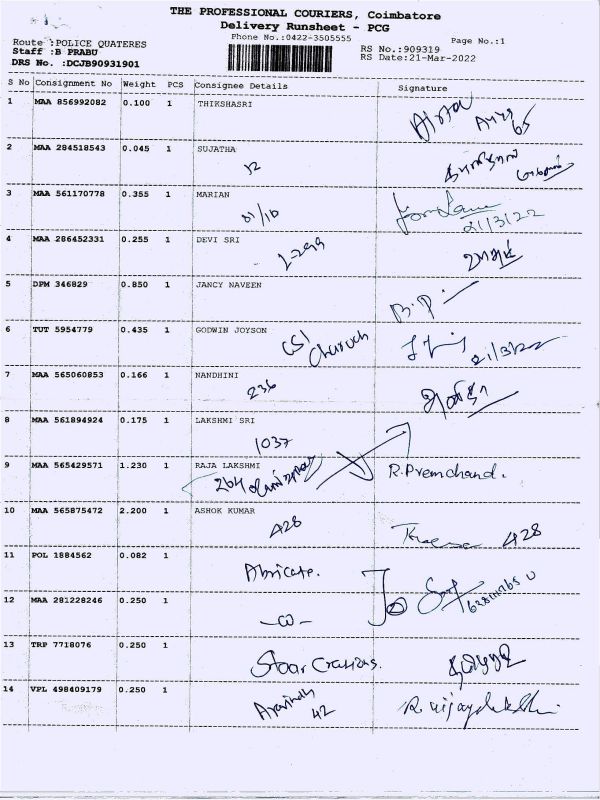 THE PROFESSIONAL COURIERS, Coimbatore
Delivery Runsheet - PCG
Phone No.:0422-3505555
Page No.:1
Route :POLICE QUATERES
Staff :B PRABU
DRS No. :DCJB90931901
RS No.:909319
RS Date:21-Mar-2022
S No Consignment No Weight PCS Consignee Details Signature
1 MAA 856992082 0.100 1 THIKSHASRI
2 MAA 284518543 0.045 1 SUJATHA
12
3 MAA 561170778 0.355 1 MARIAN
01/10 21/3/22
4 MAA 286452331 0.255 1 DEVI SRI
5 DPM 346829 0.850 1 JANCY NAVEEN
B.P
6 TUT 5954779 0.435 1 GODWIN JOYSON
CSI Church 21/3/22
7 MAA 565060853 0.166 1 NANDHINI
236
8 MAA 561894924 0.175 1 LAKSHMI SRI
1037
9 MAA 565429571 1.230 1 RAJA LAKSHMI
264 R.Premchand.
10 MAA 565875472 2.200 1 ASHOK KUMAR
428 428
11 POL 1884562 0.082 1
Abricate.
12 MAA 281228246 0.250 1
-co-
13 TRP 7718076 0.250 1
Staar Crations.
14 VPL 498409179 0.250 1
Aravindh
42 R.vijayalakshmi